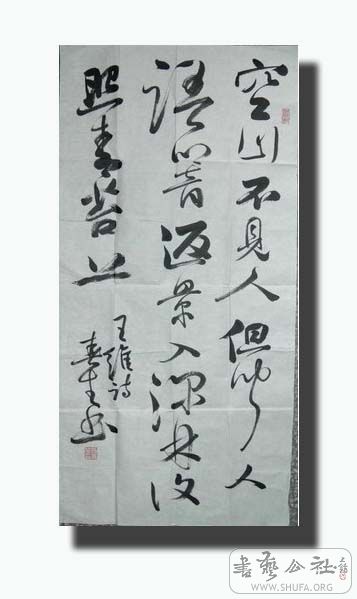 空山不見人但聞人
語響返景入深林復
照青苔上
王維詩
書藝公社
WWW.SHUFA.ORG